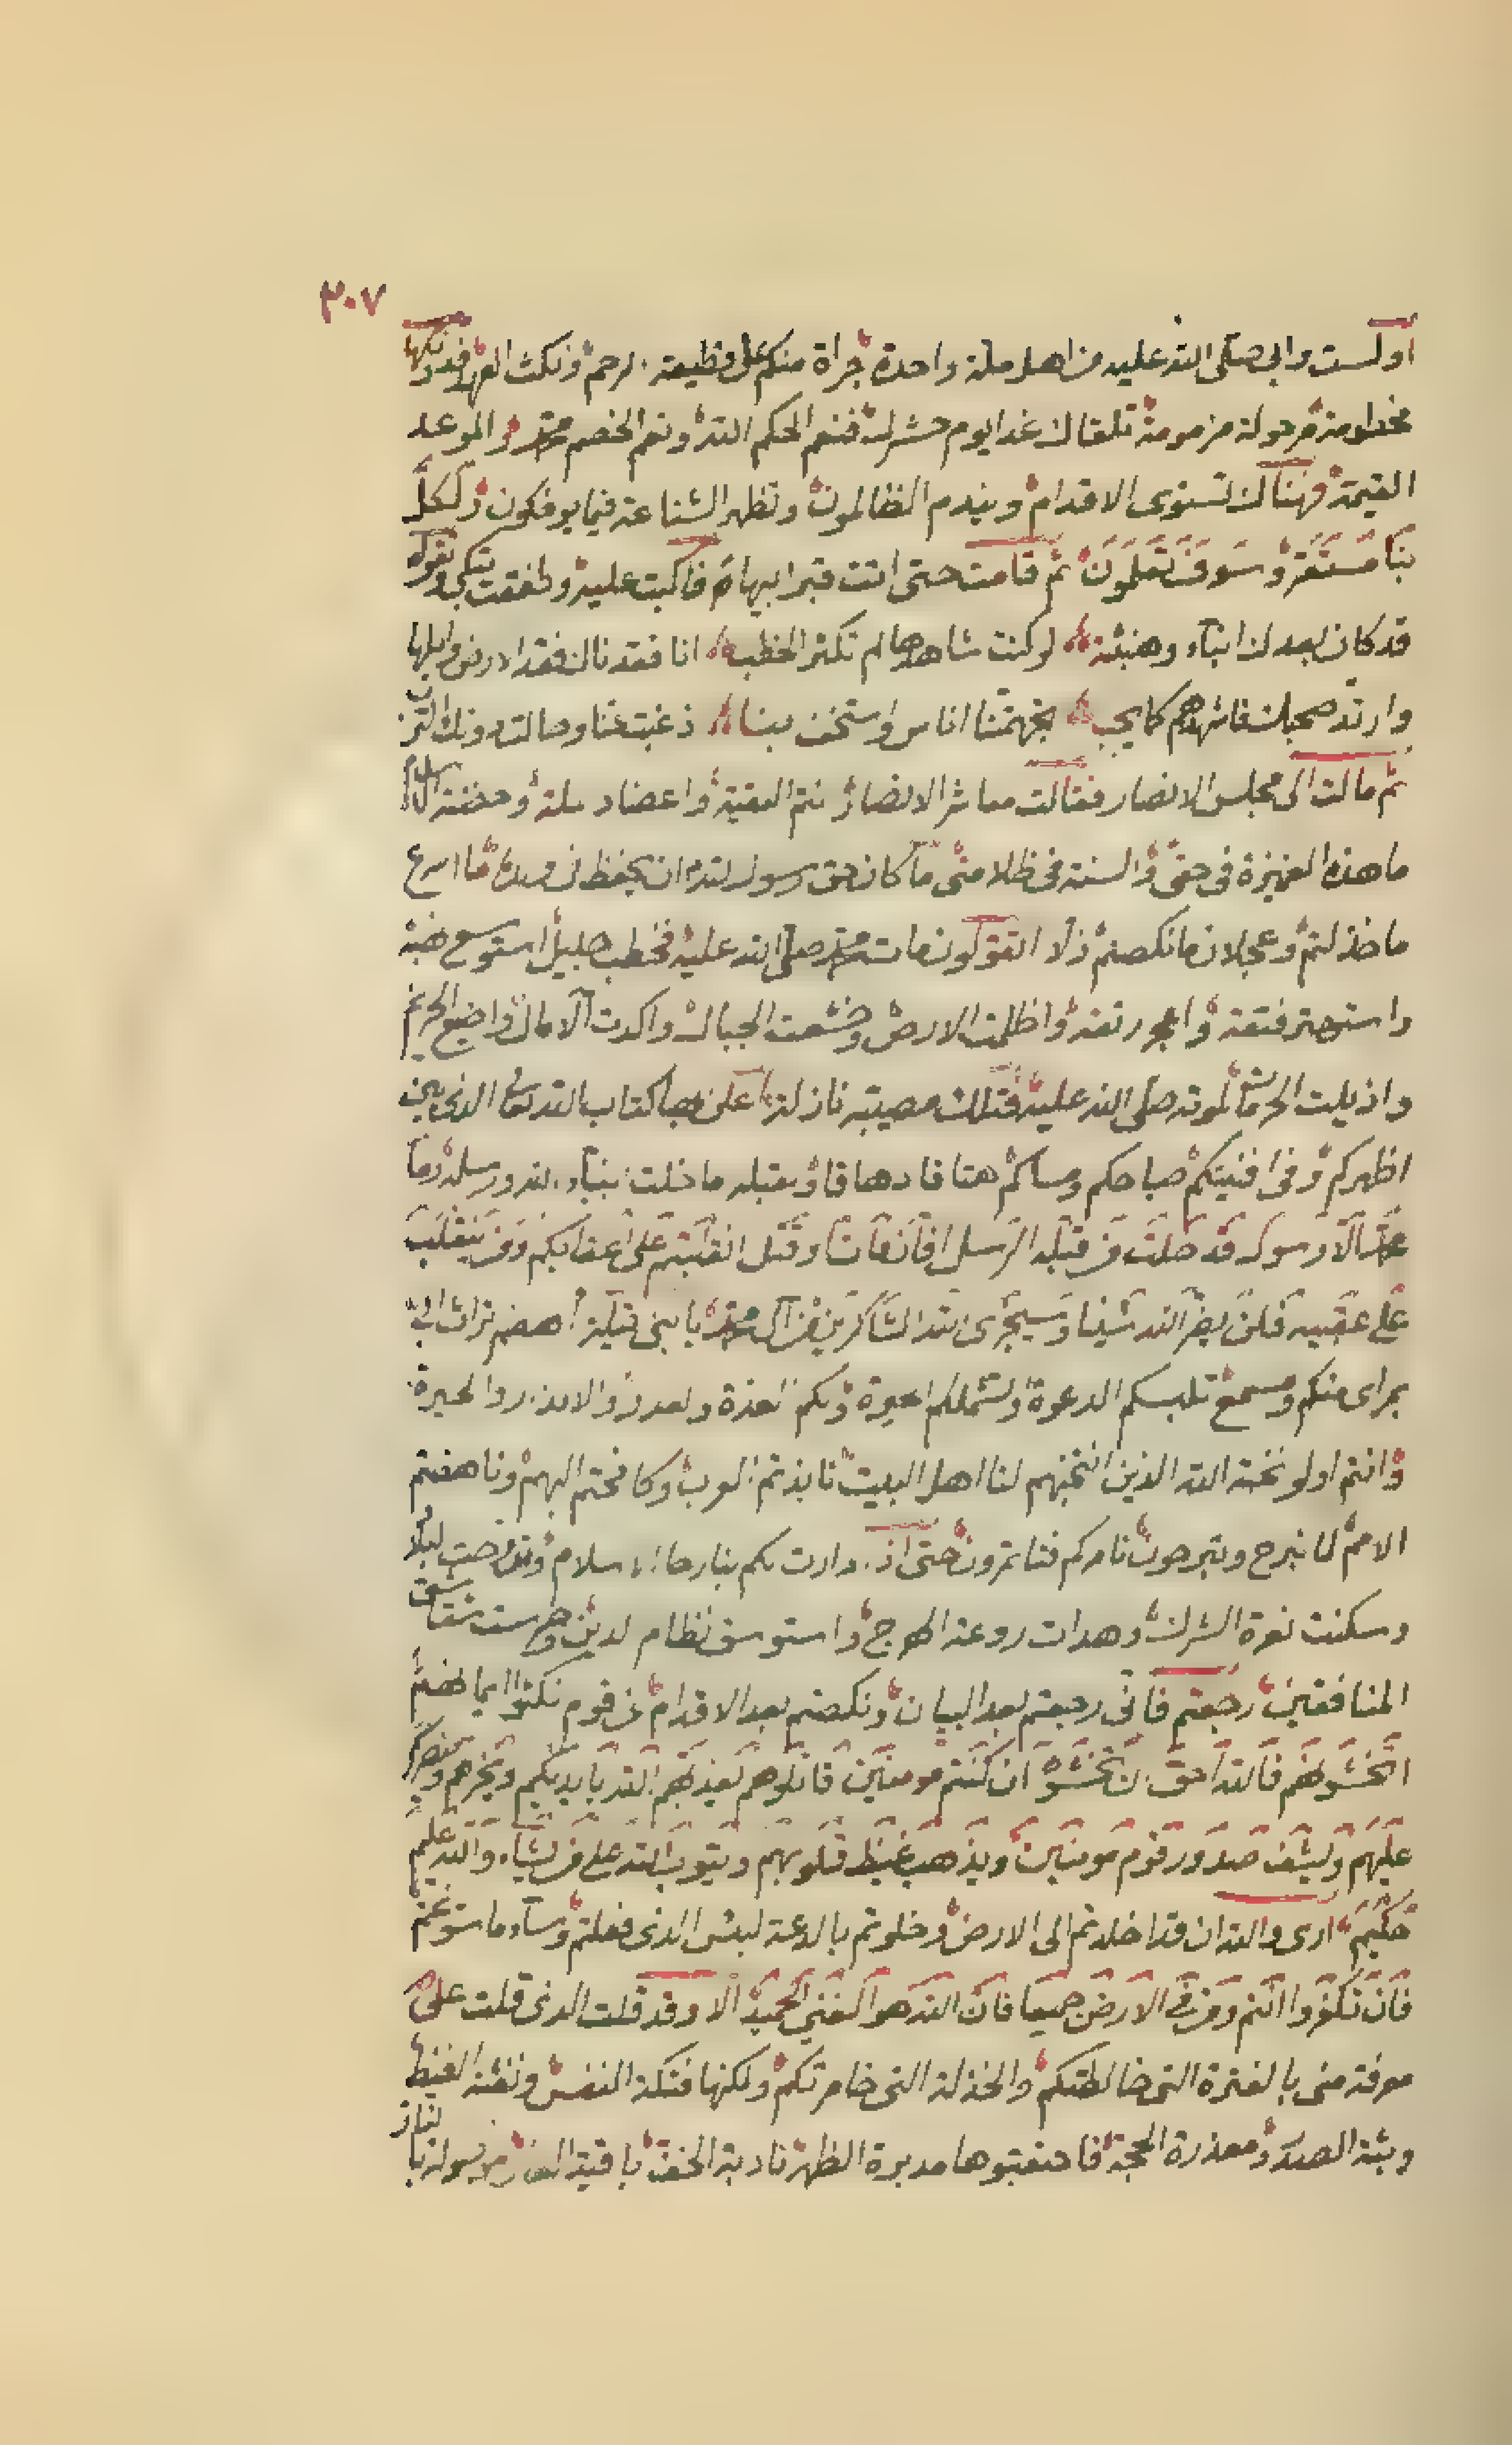 ٣٠٧
اولست وابي صلى الله عليه من اهل ملة واحدة جراة منكم على قطيعة الرحم ونكث العهد فدونكها
مخطومة مرحولة مزمومة تلقاك غدا يوم حشرك فنعم الحكم الله ونعم الخصم محمد والموعد
القيمة فهنالك تستوى الاقدام ويندم الظالمون وتظهر الشناعة فيما يوفكون ولكل
نبأ مستقر وسوف تعلمون ثم قامت حتى اتت قبر ابيها فاكبت عليه وطفقت تبكي وتقول
قد كان بعدك انباء وهنبثة لو كنت شاهدها لم تكثر الخطب انا فقدناك فقد الارض وابلها
وارتد صحبك فاشهدهم كما يجب تجهمتنا اناس واستخف بنا اذ غبت عنا وحالت دونك الترب
ثم مالت الى مجلس الانصار فقالت معاشر الانصار نتم البقية واعضاد الملة وحضنة الاسلام
ما هذه الغميزة في حقي والسنة في ظلامتي ما كان حق رسول الله ان يحفظ في ولده ما اسرع
ما خذلتم وعجلان ما نكصتم ذلا اتقولون مات محمد صلى الله عليه فخطب جليل استوسع
واستهتر فتقه وا رتقه واظلمت الارض وخشعت الجبال واكدت الامال واضيع الحريم
واذيلت الحرمة لموته صلى الله عليه فتلك مصيبة نازلة اعلن بها كتاب الله الذي بين
اظهركم وفي افنيتكم صباحكم ومساكم هتافا دهافا وقبله ما خلت بنبياء الله ورسله وما
محمد الا رسول قد خلت من قبله الرسل افان مات او قتل انقلبتم على اعقابكم ومن ينقلب
على عقبيه فلن يضر الله شيئا وسيجزى الله الشاكرين آل محمد يا بني قيلة أهضم تراث ابي
بمراى منكم ومسمع تلبسكم الدعوة وتشملكم الحيرة وبكم العدة والعدد والابد
وانتم اولو نخبة الله الذين انتخبهم لنا اهل البيت نابذتم العرب وكافحتم البهم وناهضتم
الامم لا نبرح وتبرحون نامركم فتاتمرون حتى اذ دارت بكم بنا رحا الاسلام
وسكنت نعرة الشرك وهدات روعة الهرج واستوسق نظام الدين وخرست شقاشق
المنافقين رجعتم فانى رجعتم بعد البيان ونكصتم بعد الاقدام عن قوم نكثوا ايمانهم
اتخشونهم فالله احق ان تخشوه ان كنتم مومنين قاتلوهم يعذبهم الله بايديكم ويخزهم وينصركم
عليهم ويشف صدور قوم مومنين ويذهب غيظ قلوبهم ويتوب الله على من يشاء والله عليم
حكيم ارى والله ان قد اخلدتم الى الارض وخلوتم بالدعة لبئس الذي فعلتم وساء ما
فان تكفروا انتم ومن في الارض جميعا فان الله هو الغني الحميد الا وقد قلت الذي قلت على
معرفة مني بالفترة التي خالطتكم والخذلة التي خامرتكم ولكنها فتكة النفس ونفثة الغيظ
وبثة الصدر ومعذرة الحجة فاحتقبوها مدبرة الظهر نادبة الخف باقية العار موسولة با
لنار